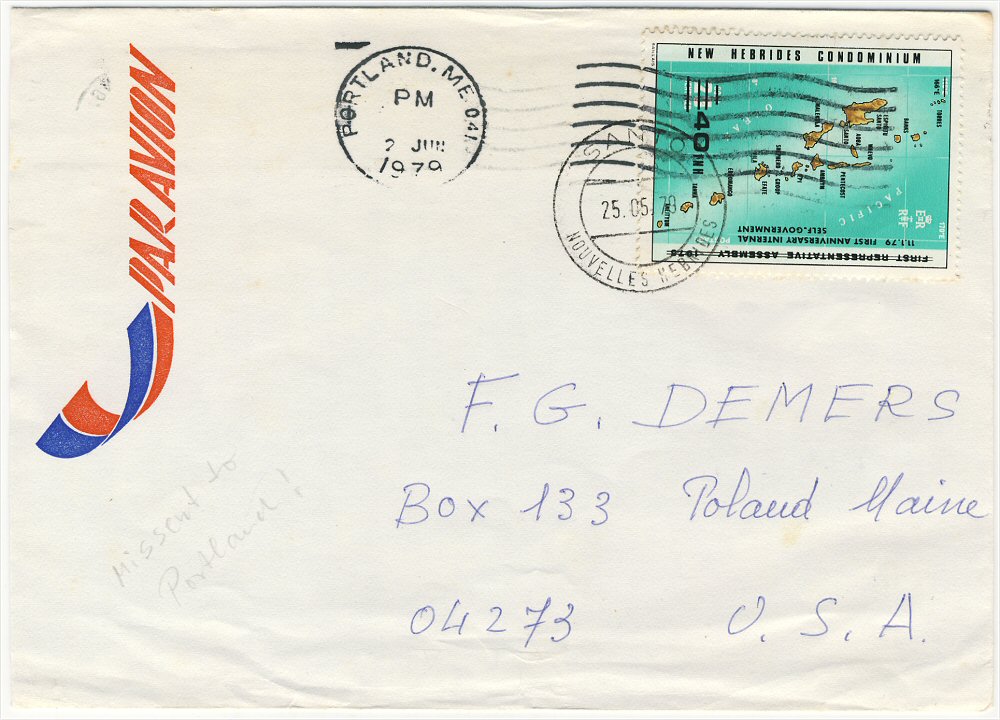 PAR AVION
PORTLAND, ME 041
PM
2 JUN
1979
NEW HEBRIDES CONDOMINIUM
166°E
TORRES
BANKS
ESPIRITU
SANTO
SANTO
AOBA
MAEWO
MALEKULA
PENTECOST
AMBRYM
EPI
SHEPHERD
GROUP
EFATE
VILA
ERROMANGO
TANNA
ANEITYUM
CORAL SEA
PACIFIC
E II R
RF
170°E
40
FNH
11.1.79 FIRST ANNIVERSARY INTERNAL
SELF-GOVERNMENT
FIRST REPRESENTATIVE ASSEMBLY 1975
SANTO
25.05.79
NOUVELLES HEBRIDES
F. G. DEMERS
Box 133 Poland Maine
04273 U. S. A.
Missent to
Portland!